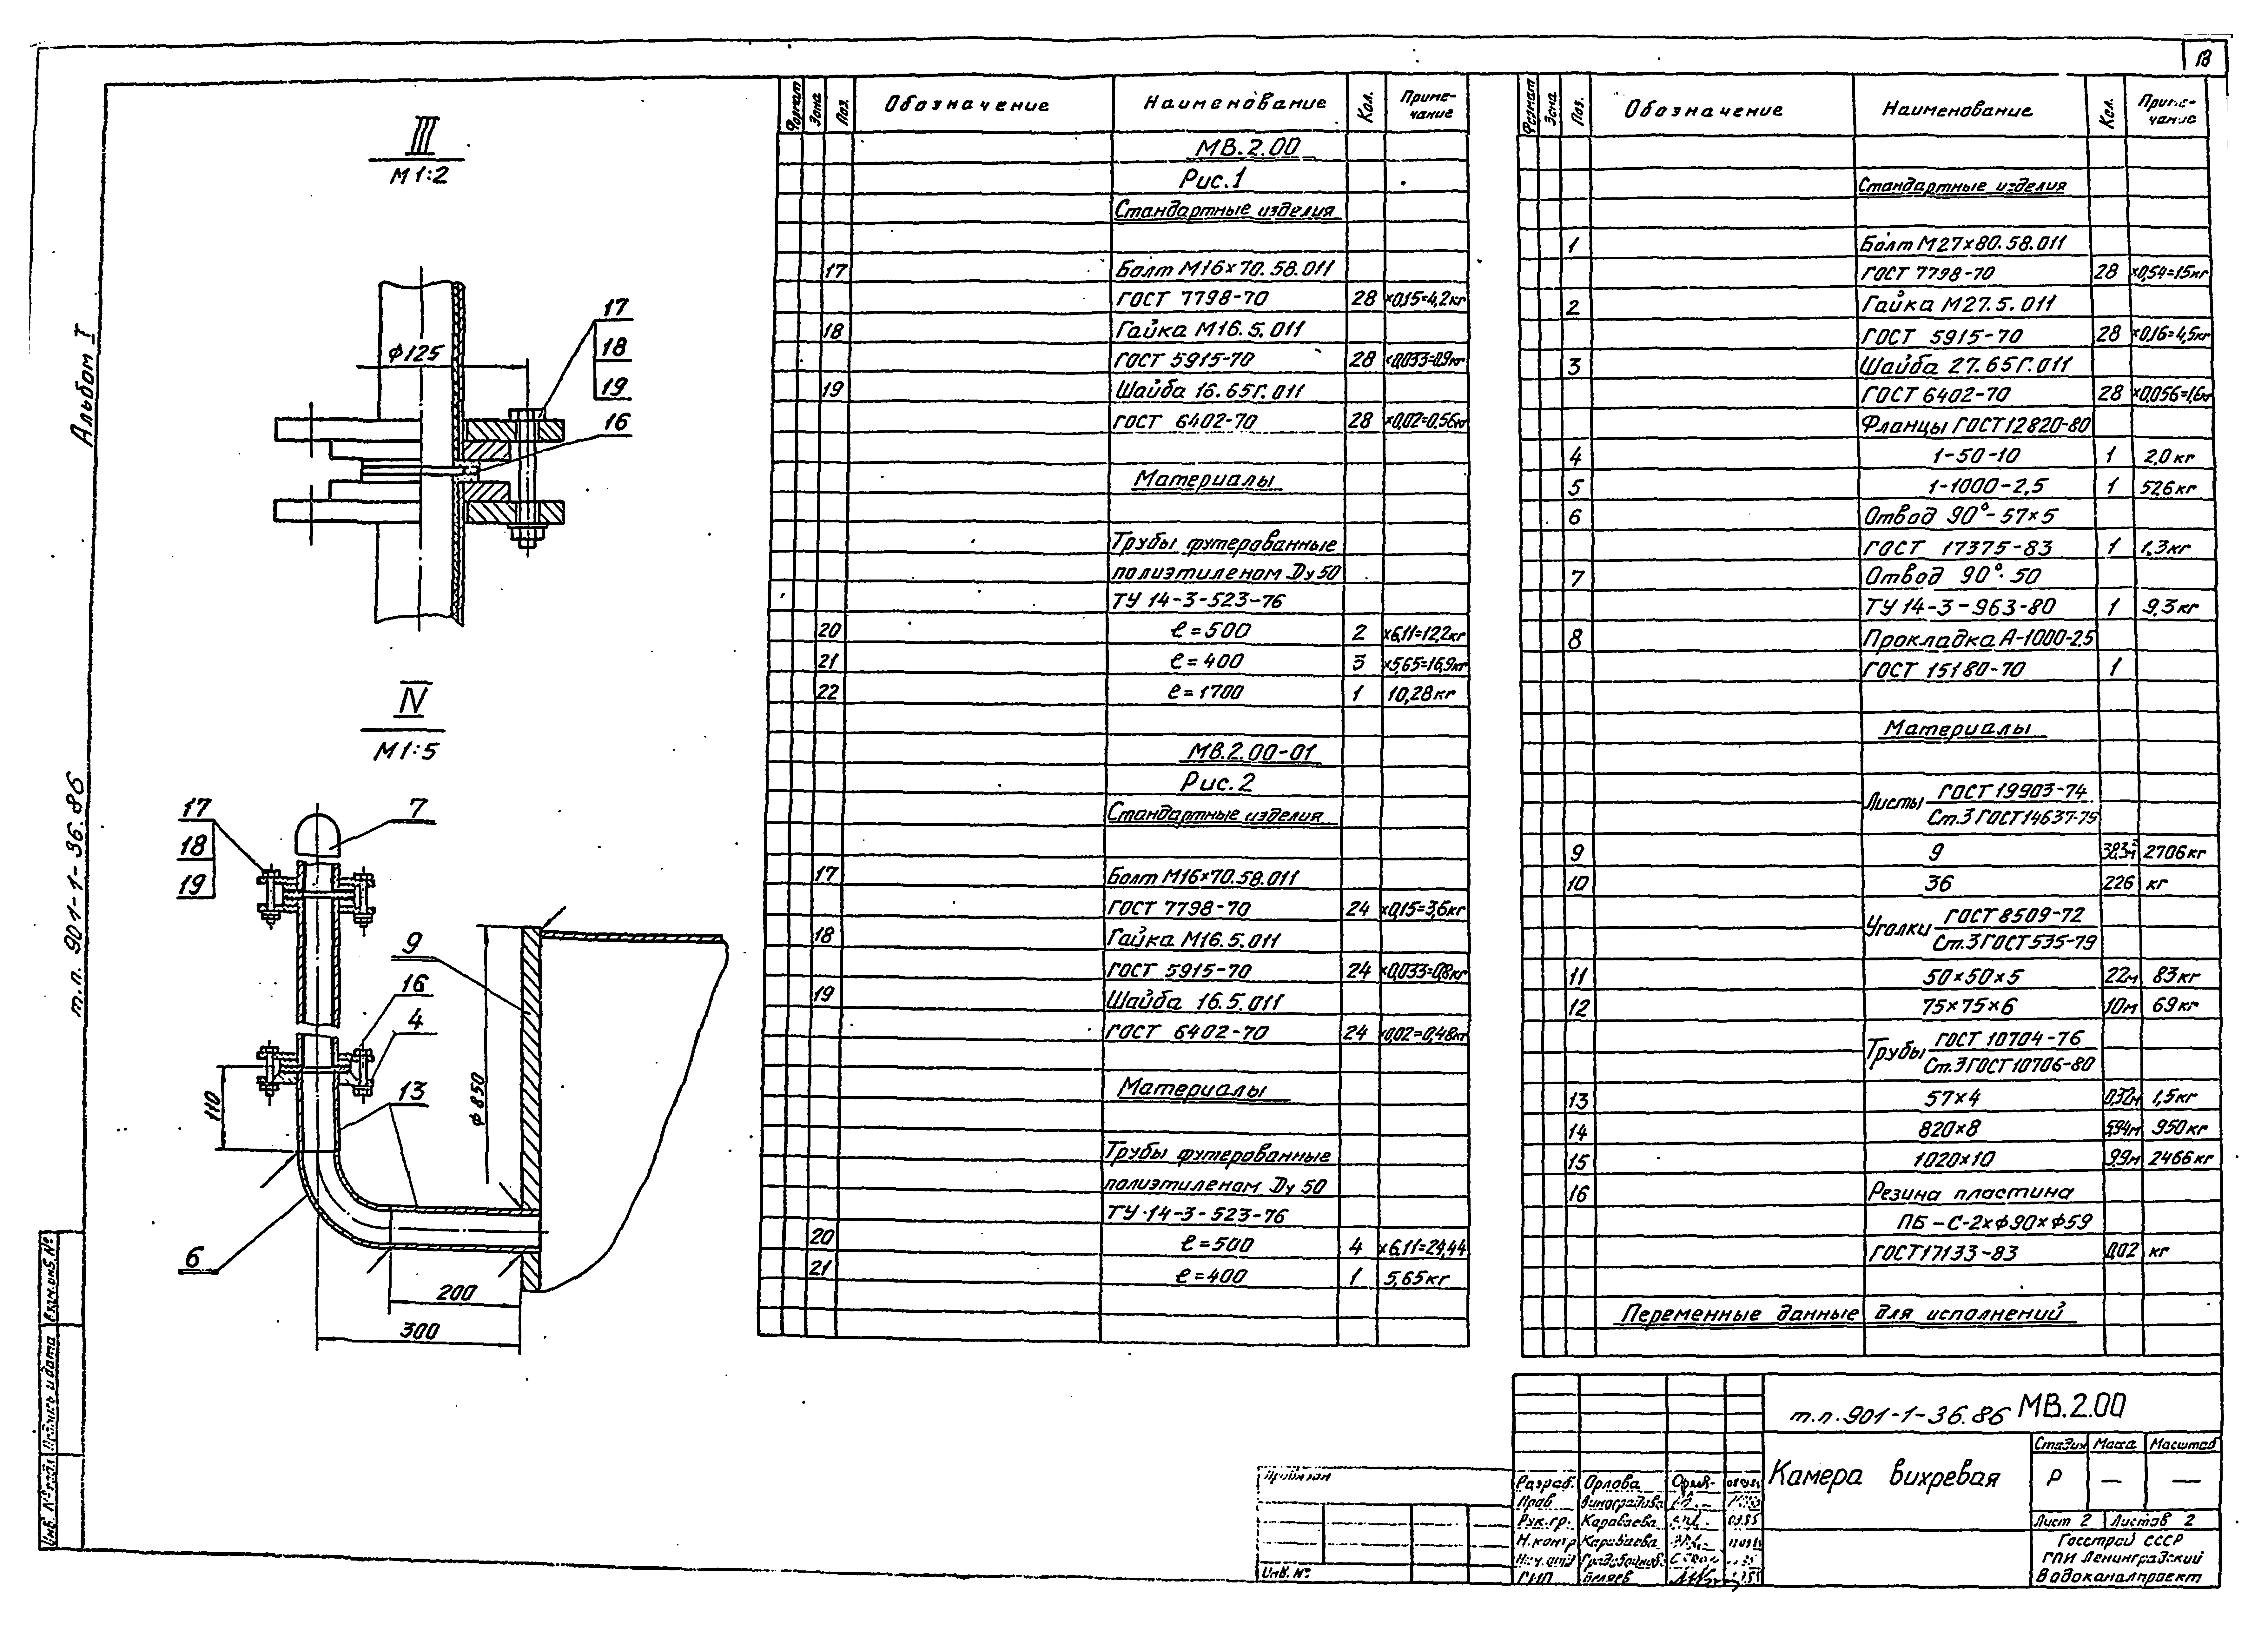 В
Альбом I
т.п. 901-1-36.86
III
М 1:2
ф125
17
18
19
16
IV
М 1:5
17
18
19
7
9
16
4
13
110
ф850
6
200
300
Формат Зона Поз. Обозначение Наименование Кол. Приме-
чание
МВ.2.00
Рис.1
Стандартные изделия
17 Болт М16×70.58.011
ГОСТ 7798-70 28 ×0,15=4,2кг
18 Гайка М16.5.011
ГОСТ 5915-70 28 ×0,033=0,9кг
19 Шайба 16.65Г.011
ГОСТ 6402-70 28 ×0,02=0,56кг
Материалы
Трубы футерованные
полиэтиленом Ду 50
ТУ 14-3-523-76
20 ℓ=500 2 ×6,11=12,2кг
21 ℓ=400 3 ×5,65=16,9кг
22 ℓ=1700 1 10,28кг
МВ.2.00-01
Рис.2
Стандартные изделия
17 Болт М16×70.58.011
ГОСТ 7798-70 24 ×0,15=3,6кг
18 Гайка М16.5.011
ГОСТ 5915-70 24 ×0,033=0,8кг
19 Шайба 16.5.011
ГОСТ 6402-70 24 ×0,02=0,48кг
Материалы
Трубы футерованные
полиэтиленом Ду 50
ТУ-14-3-523-76
20 ℓ=500 4 ×6,11=24,44
21 ℓ=400 1 5,65кг
Формат Зона Поз. Обозначение Наименование Кол. Приме-
чание
Стандартные изделия
1 Болт М27×80.58.011
ГОСТ 7798-70 28 ×0,54=15кг
2 Гайка М27.5.011
ГОСТ 5915-70 28 ×0,16=4,5кг
3 Шайба 27.65Г.011
ГОСТ 6402-70 28 ×0,056=1,6кг
Фланцы ГОСТ 12820-80
4 1-50-10 1 2,0кг
5 1-1000-2,5 1 52,6кг
6 Отвод 90°-57×5
ГОСТ 17375-83 1 1,3кг
7 Отвод 90°-50
ТУ 14-3-963-80 1 9,3кг
8 Прокладка А-1000-2,5
ГОСТ 15180-70 1
Материалы
Листы ГОСТ 19903-74
Ст.3 ГОСТ 14637-79
9 9 38,3м² 2706кг
10 36 226 кг
Уголки ГОСТ 8509-72
Ст.3 ГОСТ 535-79
11 50×50×5 22м 83кг
12 75×75×6 10м 69кг
Трубы ГОСТ 10704-76
Ст.3 ГОСТ 10706-80
13 57×4 0,32м 1,5кг
14 820×8 5,94м 950кг
15 1020×10 9,9м 2466кг
16 Резина пластина
ПБ-С-2×ф90×ф59
ГОСТ 17133-83 0,02 кг
Переменные данные для исполнений
т.п. 901-1-36.86 МВ.2.00
Камера вихревая
Стадия Масса Масштаб
Р — —
Лист 2 Листов 2
Госстрой СССР
ГПИ Ленинградский
Водоканалпроект
Разраб. Орлова
Пров. Виноградова
Рук.гр. Караваева 09.85
Н.контр. Караваева
Нач.отд.
ГИП Беляев
Привязан
Инв. №
Взам.инв.№
Подпись и дата
Инв. № подл.